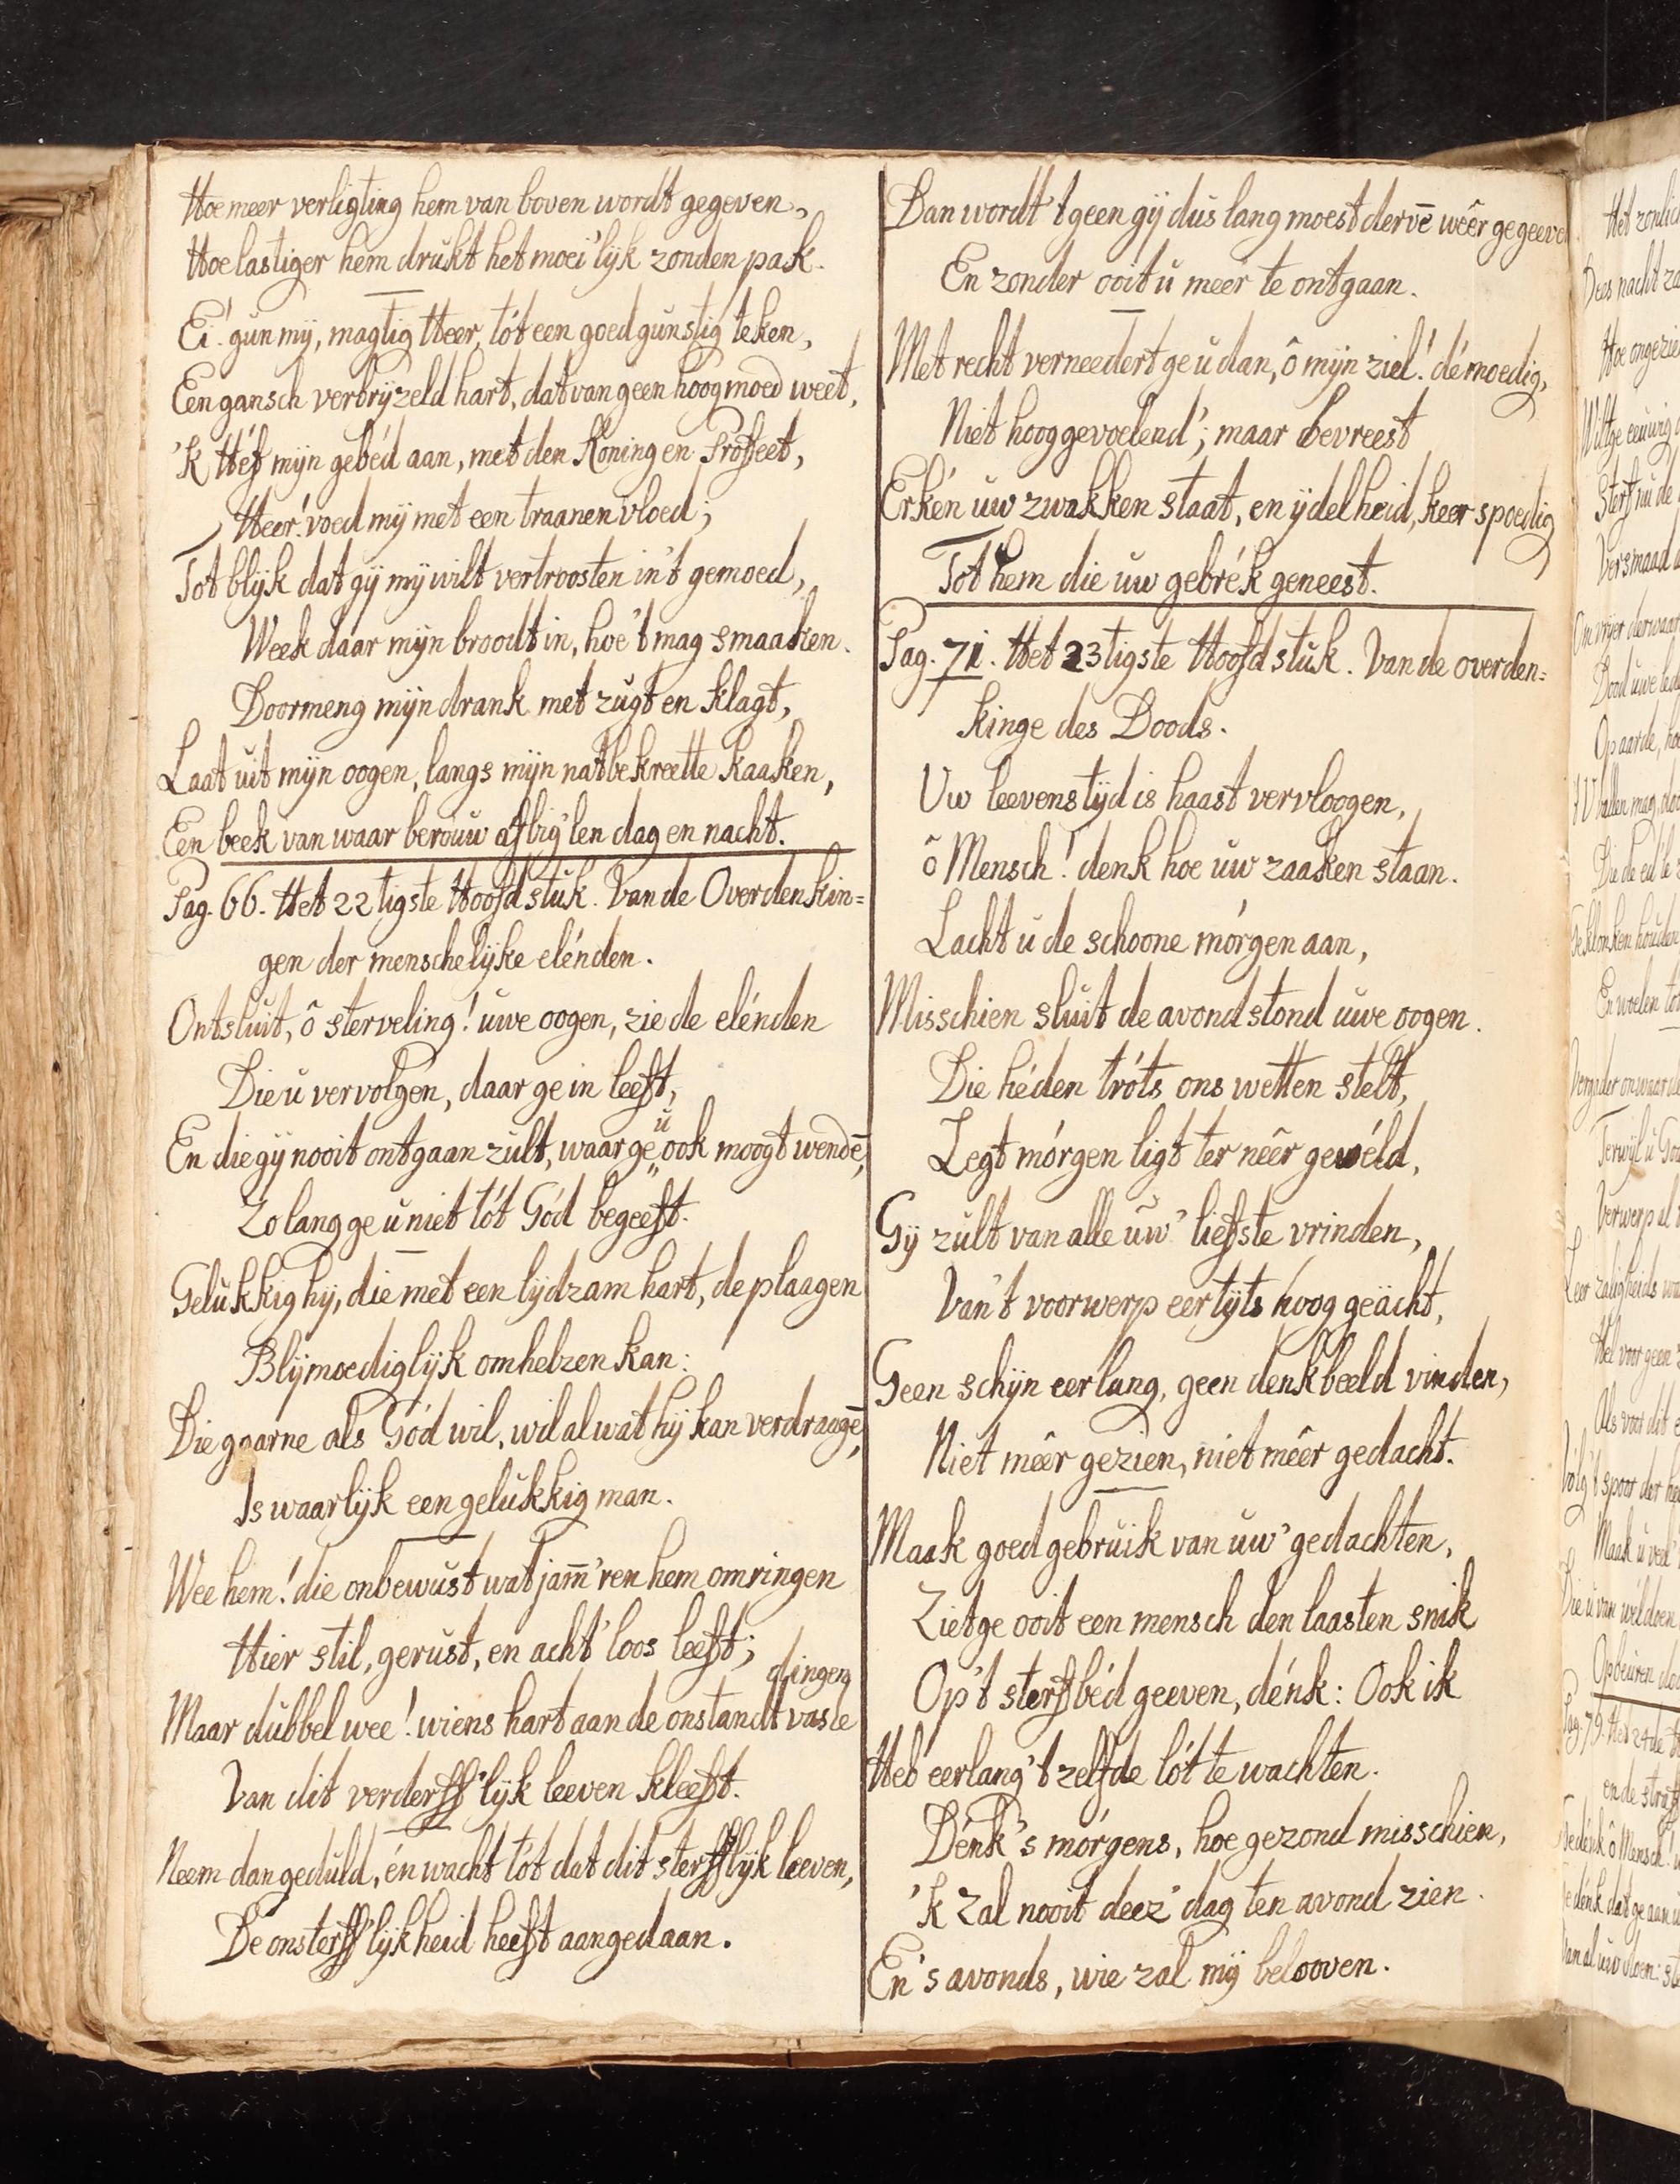 Hoe meer verligting hem van boven wordt gegeven,
Hoe lastiger hem drukt het moei'lijk zonden pak.
Ei! gun mij, magtig Heer, tót een goedgunstig teken,
Een gansch verbrijzeld hart, dat van geen hoogmoed weet,
'K Héf mijn gebéd aan, met den Koning en Profeet,
Heer! voed mij met een traanen vloed;
Tot blijk dat gij mij wilt vertroosten in 't gemoed,
Week daar mijn broodt in, hoe 't mag smaaken.
Doormeng mijn drank met zugt en klagt,
Laat uit mijn oogen, langs mijn natbekreette kaaken,
Een beek van waar berouw afbig'len dag en nacht.
Pag. 66. Het 22tigste Hoofdstuk. Van de Overdenkin=
gen der menschelijke elénden.
Ontsluit, ô sterveling! uwe oogen, zie de elénden
Die u vervolgen, daar ge in leeft,
En die gij nooit ontgaan zult, waar ge u ook moogt wendē,
Zo lang ge u niet tót Gód begeeft.
Gelukkig hij, die met een lijdzam hart, de plaagen
Blijmoediglijk omhelzen kan:
Die gaarne als Gód wil, wil al wat hij kan verdraagē,
Is waarlijk een gelukkig man.
Wee hem! die onbewust wat jam̄'ren hem omringen
Hier stil, gerust, en acht'loos leeft;
Maar dubbel wee! wiens hart aan de onstandtvaste dingen
Van dit verderff'lijk leeven kleeft.
Neem dan geduld, én wacht tót dat dit sterfflijk leeven,
De onsterff'lijkheid heeft aangedaan.
Dan wordt 't geen gij dus lang moest dervē weêr gegeeve
En zonder ooit u meer te ontgaan.
Met recht verneedert ge u dan, ô mijn ziel! démoedig,
Niet hooggevoelend'; maar bevreest
Erkén uw zwakken staat, en ijdelheid, keer spoedig
Tot hem die uw gebrék geneest.
Pag. 71. Het 23tigste Hoofdstuk. Van de overden=
kinge des Doods.
Uw leevenstijd is haast vervloogen,
ô Mensch! denk hoe uw zaaken staan.
Lacht u de schoone mórgen aan,
Misschien sluit de avondstond uwe oogen.
Die héden tróts ons wetten stelt,
Legt mórgen ligt ter nêer gewéld,
Gij zult van alle uw' liefste vrinden,
Van 't voorwerp eertijts hoog geächt,
Geen schijn eerlang, geen denkbeeld vinden,
Niet mêer gezien, niet mêer gedacht.
Maak goed gebruik van uw' gedachten,
Zietge ooit een mensch den laasten snik
Op 't sterfbéd geeven, dénk: Ook ik
Heb eerlang 't zelfde lót te wachten.
Dénk 's mórgens, hoe gezond misschien,
'k Zal nooit deez' dag ten avond zien.
En 's avonds, wie zal mij belooven.